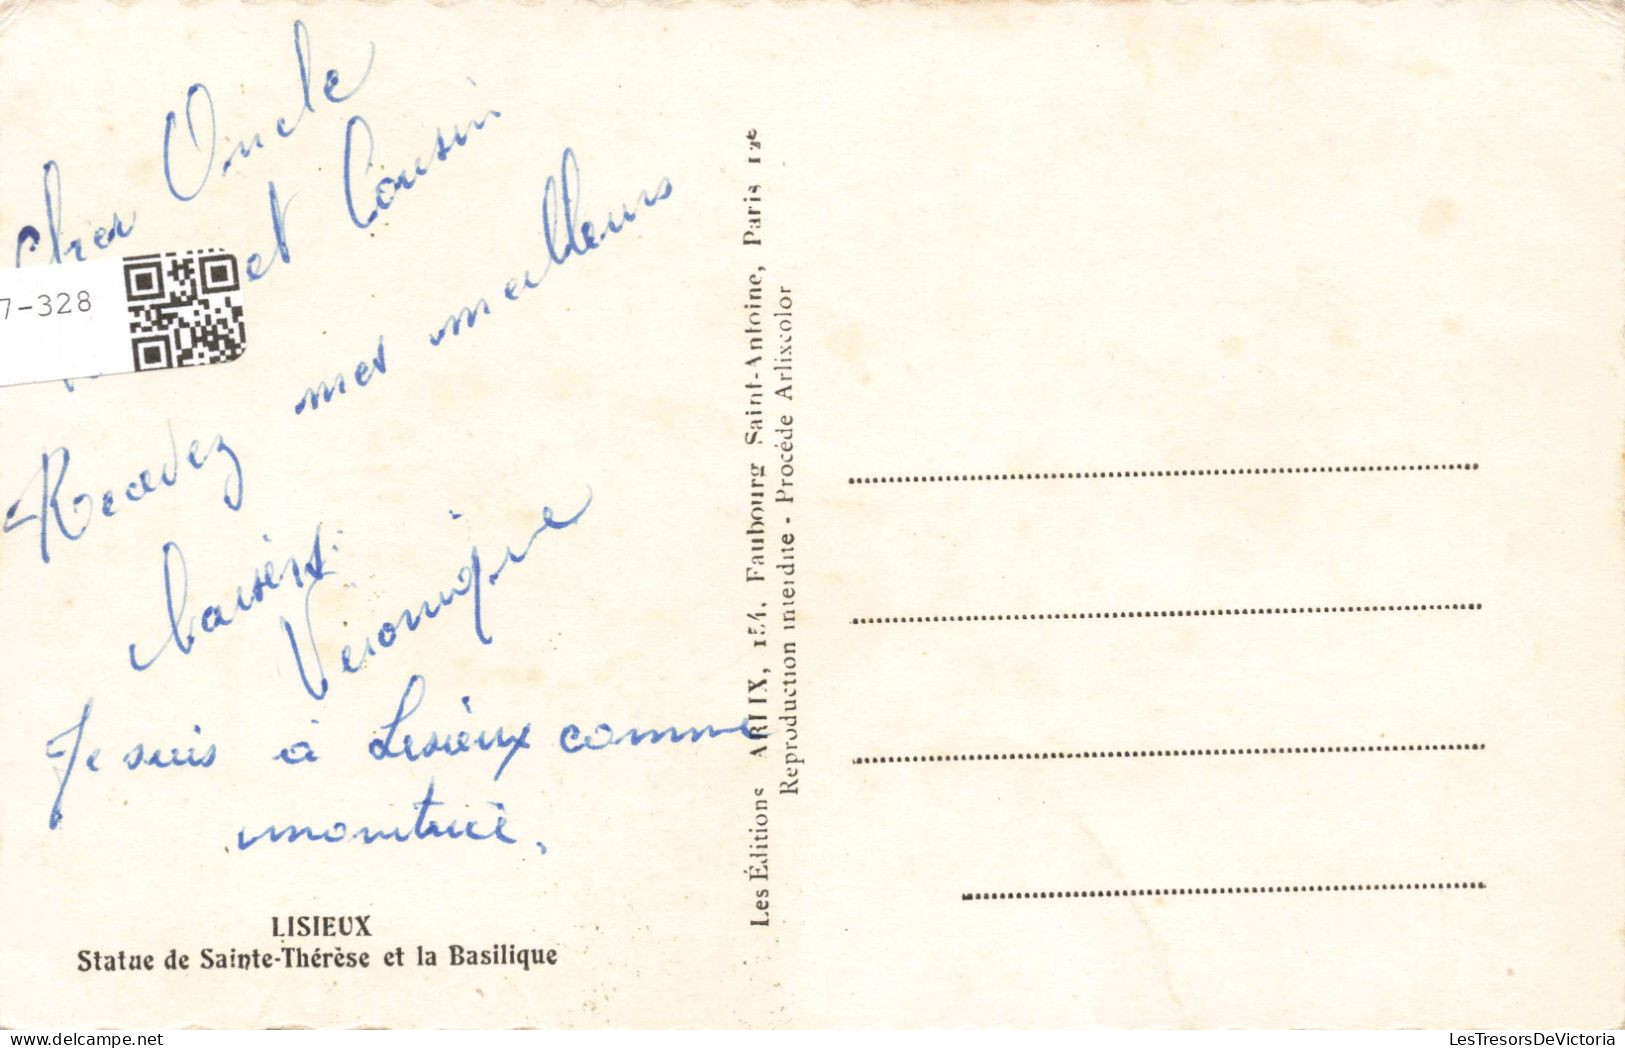 Cher Oncle
et Cousin
Recevez mes meilleurs
baisers.
Véronique
Je suis à Lisieux comme
monitrice.
LISIEUX
Statue de Sainte-Thérèse et la Basilique
Les Éditions ARLIX, 154, Faubourg Saint-Antoine, Paris 12e
Reproduction interdite - Procédé Arlixcolor
7-328
LesTresorsDeVictoria